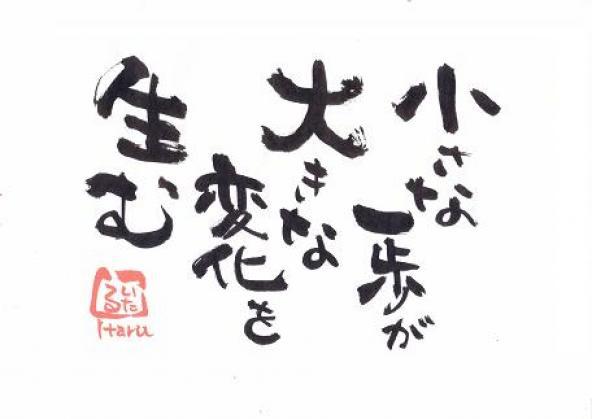 小さな
一歩が
大きな
変化を
生む
いたる
Itaru